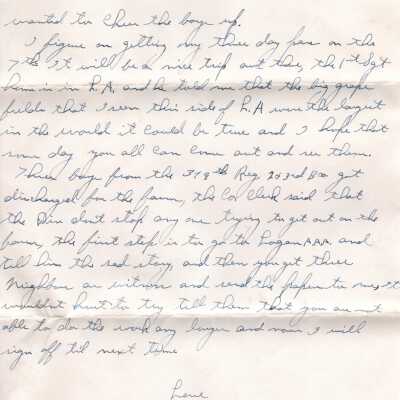 wanted to cheer the boys up.
I figure on getting my three day pass on the
7th it will be a nice trip out there, the 1st Sgt
home is in L.A. and he told me that the big grape
fields that I seen this side of L.A were the largest
in the world it could be true and I hope that
some day you all can come out and see them.
Three boys from the 379th Reg 3rd Bn got
discharged for the farm, the Co Clerk said that
the Div don't stop any one trying to get out on the
farm, the first step is to go to Logan AAA and
tell him the sad story, and then you get three
neighbors as witness and send the papers to me, it
wouldn't hurt to try tell them that you are not
able to do the work any longer and now I will
sign off til next time
Love